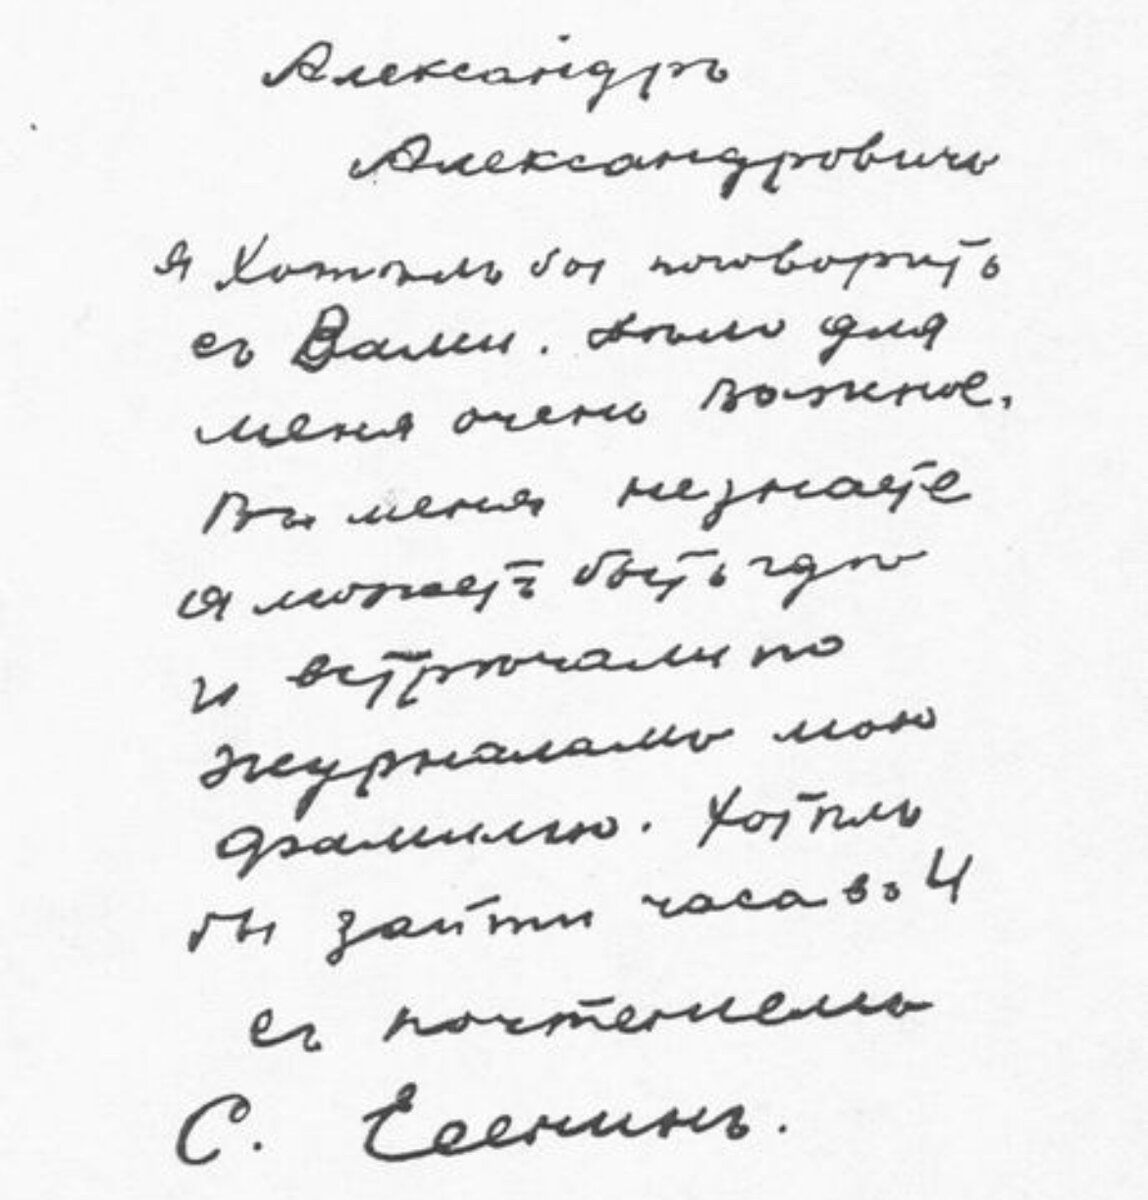 Александръ
Александровичъ
я Хотѣлъ бы поговорить
съ Вами. Дѣло для
меня очень важное.
Вы меня незнаете
а может быть гдѣ
и встрѣчали по
журналамъ мою
фамилию. Хотѣлъ
бы зайти часа въ 4
съ почтениемъ
С. Есенинъ.